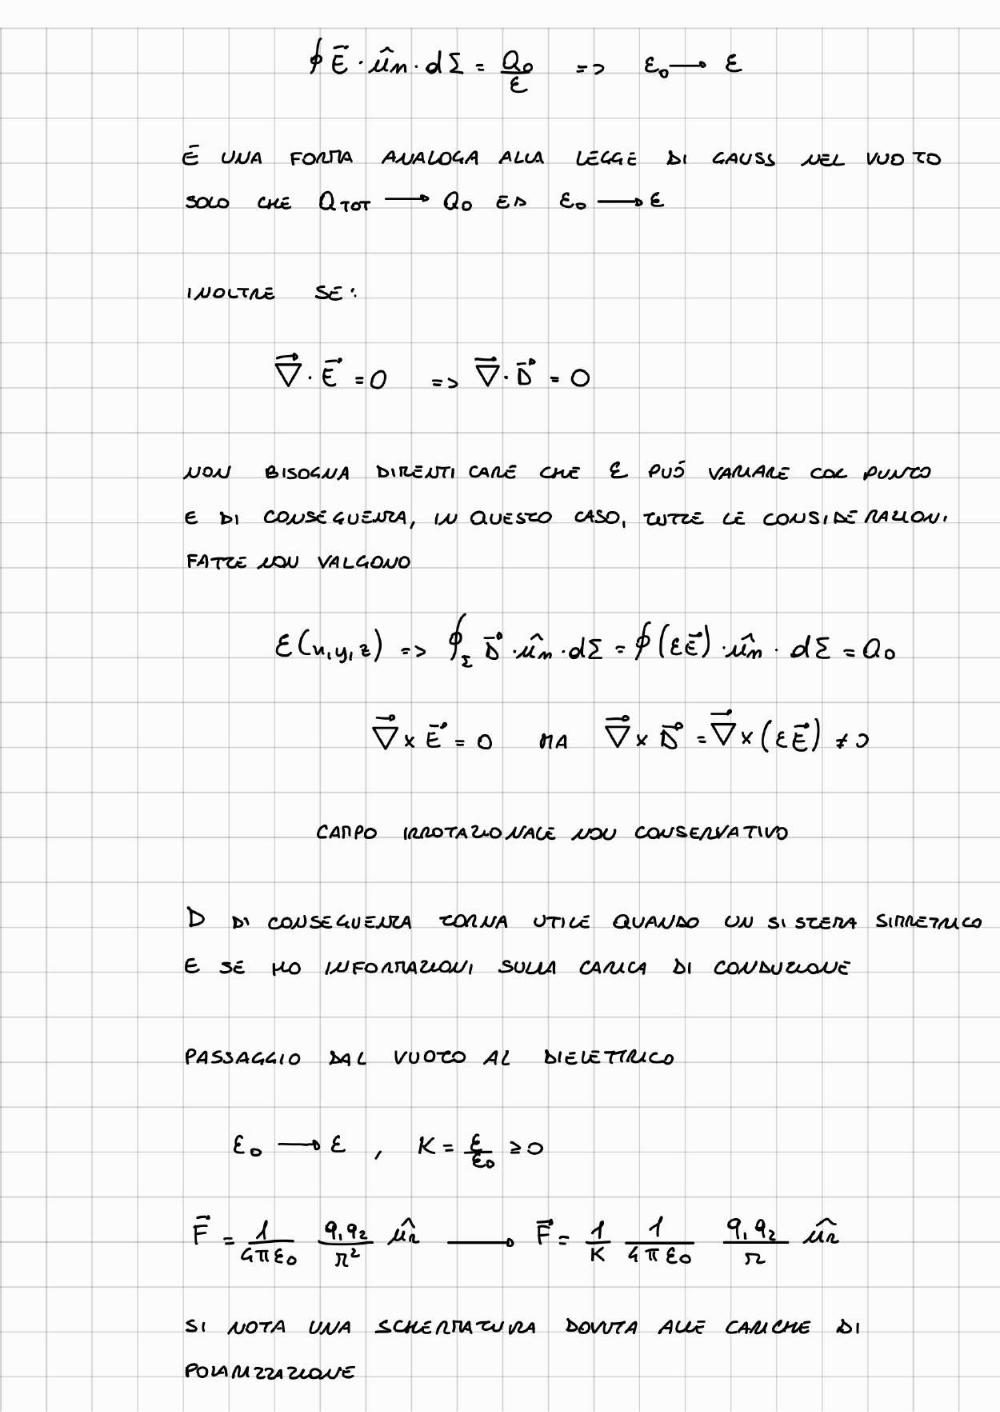 ∮ E⃗ · ûn · dΣ = Q0/ε => ε0 → ε
È UNA FORMA ANALOGA ALLA LEGGE DI GAUSS NEL VUOTO
SOLO CHE QTOT → Q0 ED ε0 → ε
INOLTRE SE:
∇⃗ · E⃗ = 0 => ∇⃗ · D⃗ = 0
NON BISOGNA DIMENTICARE CHE ε PUÓ VARIARE COL PUNTO
E DI CONSEGUENZA, IN QUESTO CASO, TUTTE LE CONSIDERAZIONI
FATTE NON VALGONO
ε(x,y,z) => ∮Σ D⃗ · ûn · dΣ = ∮(εE⃗) · ûn · dΣ = Q0
∇⃗ × E⃗ = 0 MA ∇⃗ × D⃗ = ∇⃗ × (εE⃗) ≠ 0
CAMPO IRROTAZIONALE NON CONSERVATIVO
D DI CONSEGUENZA TORNA UTILE QUANDO UN SISTEMA SIMMETRICO
E SE HO INFORMAZIONI SULLA CARICA DI CONDUZIONE
PASSAGGIO DAL VUOTO AL DIELETTRICO
ε0 → ε , K = ε/ε0 ≥ 0
F⃗ = 1/4πε0 q1q2/r² ûr → F⃗ = 1/K 1/4πε0 q1q2/r ûr
SI NOTA UNA SCHERMATURA DOVUTA ALLE CARICHE DI
POLARIZZAZIONE